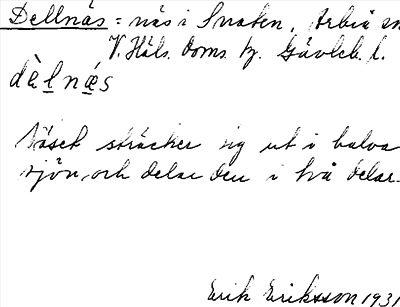 Dellnäs = näs i Svaten, Arbrå sn
V. Häls. doms. tg. Gävleb. l.
dèlnæs
Näset sträcker sig ut i halva
sjön och delar den i två delar.
Erik Eriksson 1931